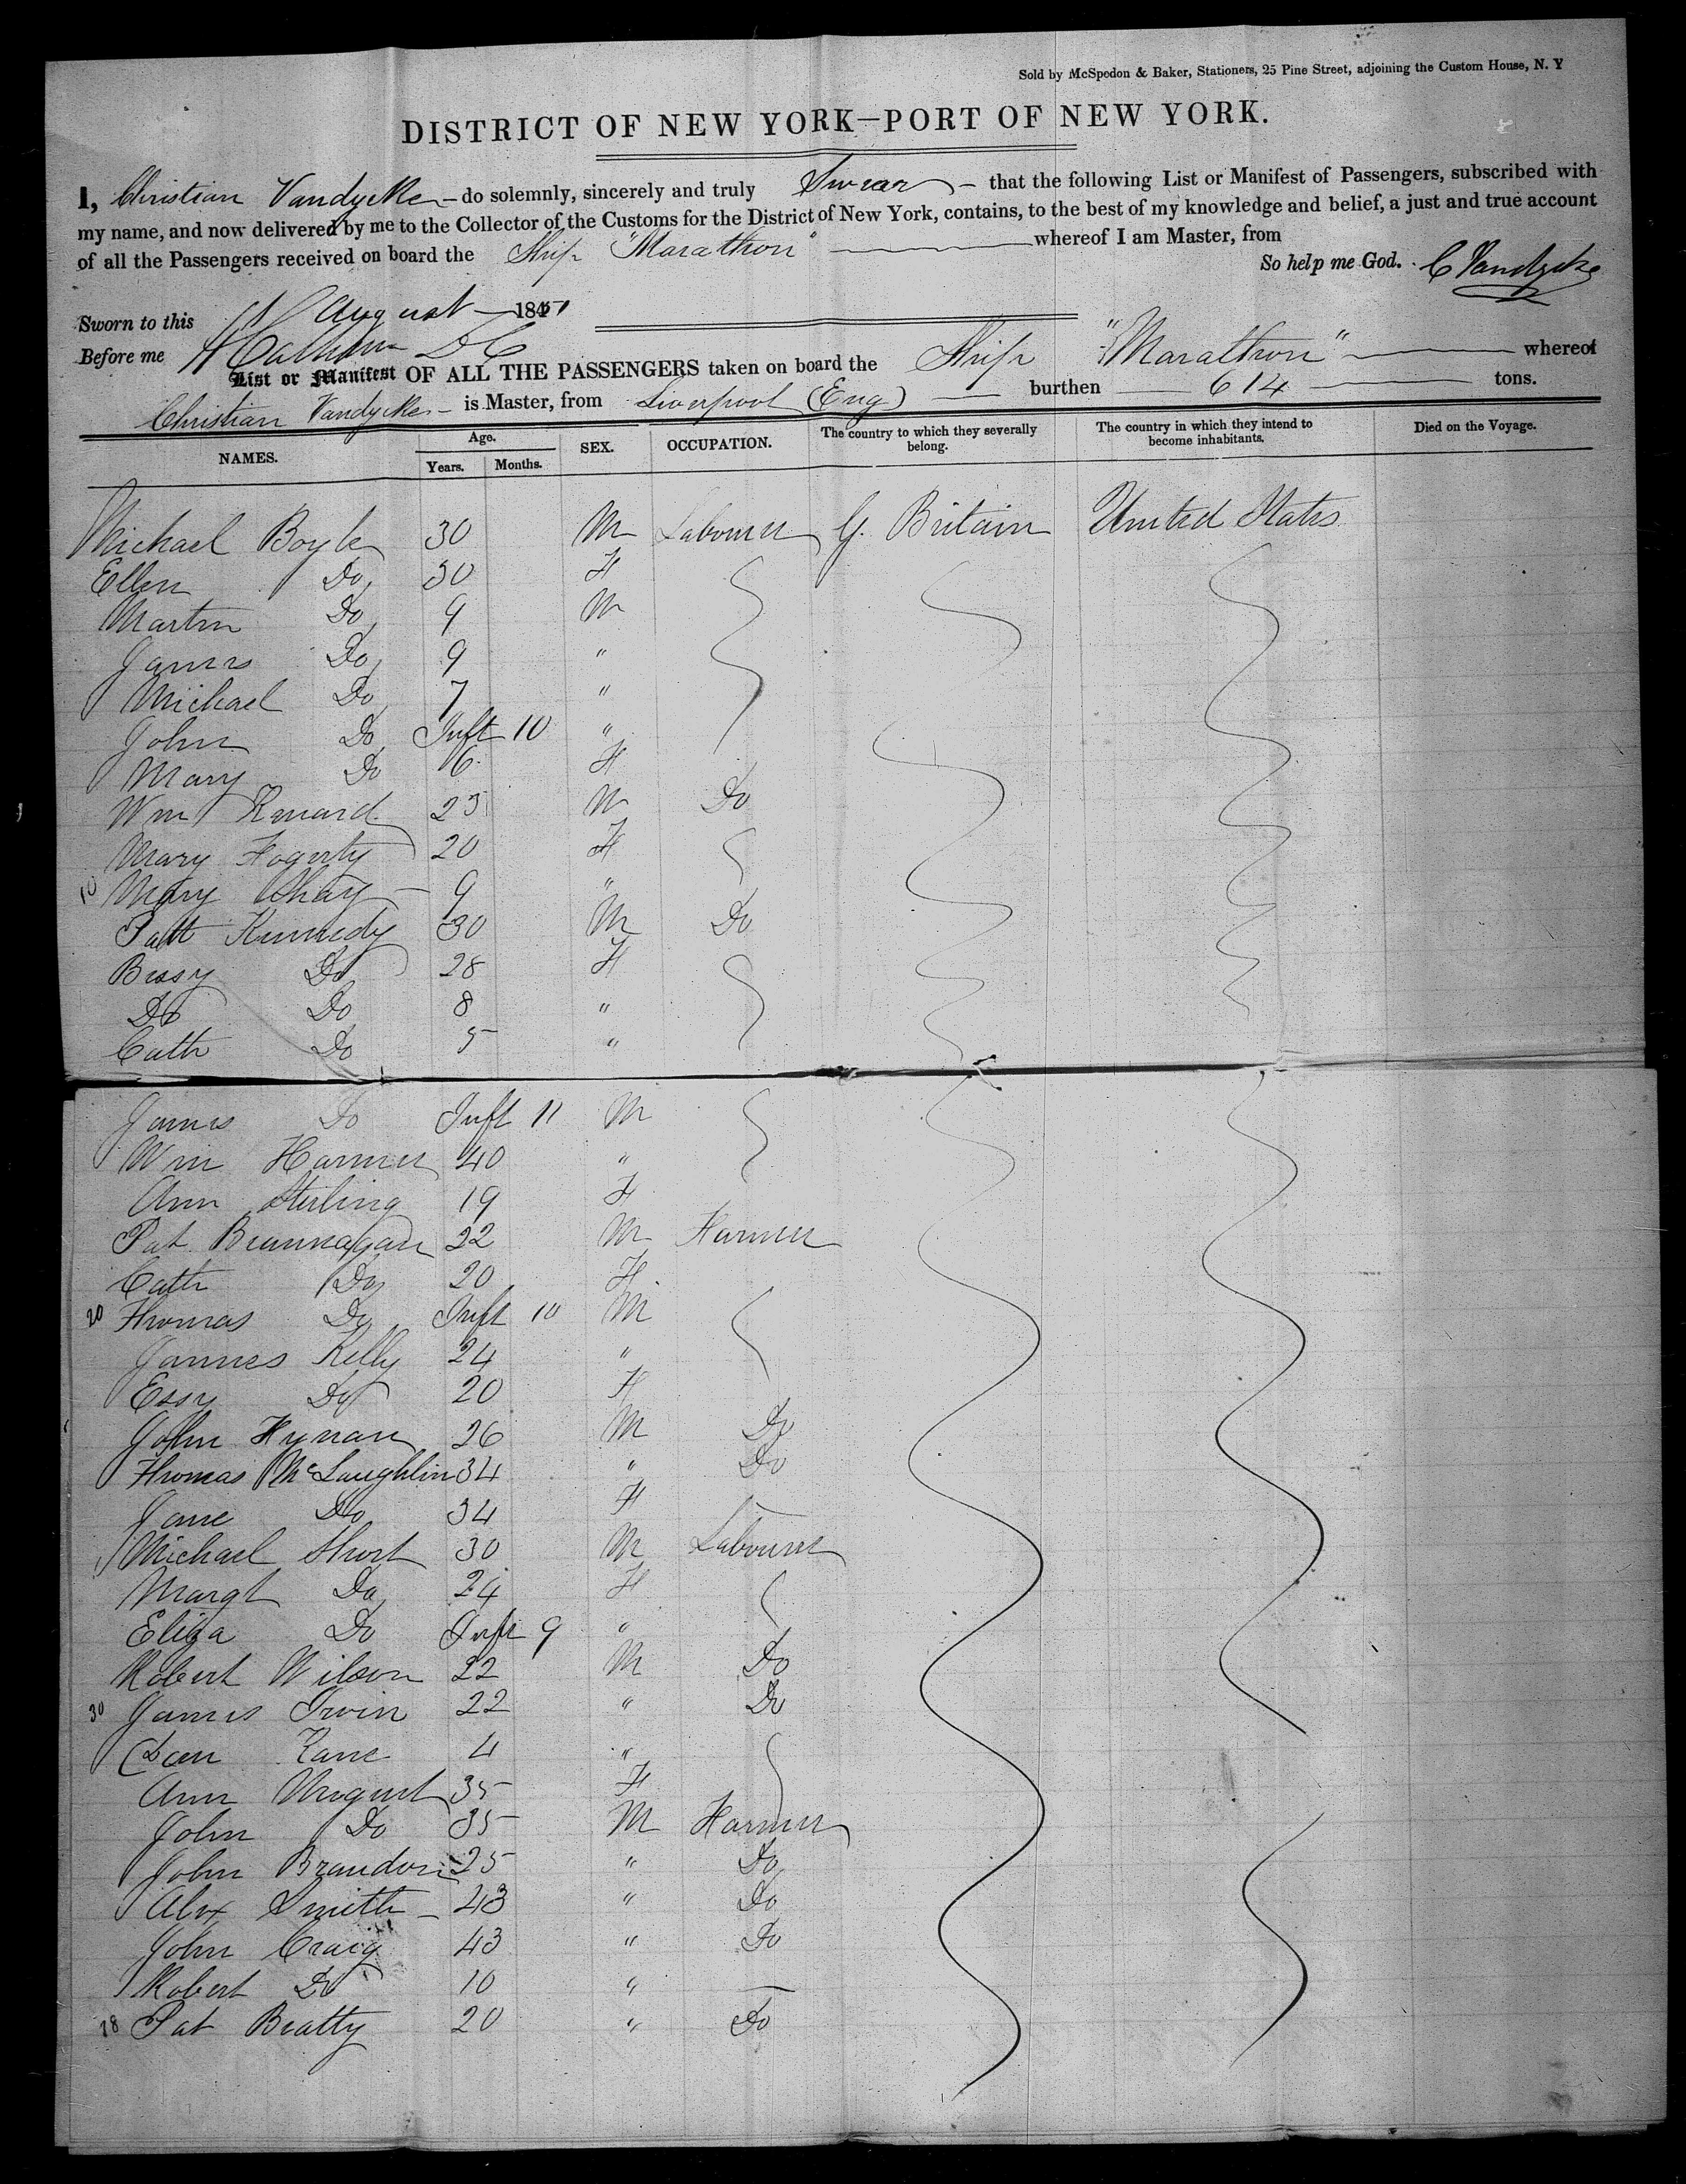 Sold by McSpedon & Baker, Stationers, 25 Pine Street, adjoining the Custom House, N. Y
DISTRICT OF NEW YORK—PORT OF NEW YORK.
I, Christian Vandycke - do solemnly, sincerely and truly Swear - that the following List or Manifest of Passengers, subscribed with
my name, and now delivered by me to the Collector of the Customs for the District of New York, contains, to the best of my knowledge and belief, a just and true account
of all the Passengers received on board the Ship "Marathon" whereof I am Master, from
So help me God. C Vandycke
Sworn to this August 184
Before me
List or Manifest OF ALL THE PASSENGERS taken on board the Ship "Marathon" whereof
Christian Vandycke - is Master, from Liverpool (Eng) burthen 614 tons.
NAMES. Age. Years. Months. SEX. OCCUPATION. The country to which they severally belong. The country in which they intend to become inhabitants. Died on the Voyage.
Michael Boyle 30 M Labourer G. Britain United States
Ellen Do 30 F
Martin Do 9 M
James Do 9 "
Michael Do 7 "
John Do Inft 10 "
Mary Do 6 F
Wm 25 M Do
Mary Fogerty 20 F
10 Mary 9 "
Patt Kennedy 30 M Do
Bessy Do 28 F
Do Do 8 "
Cath Do 5 "
James Do Inft 11 M
Wm Farmer 40 "
Ann Sterling 19 F
Pat Brannagan 22 M Farmer
Cath Do 20 F
20 Thomas Do Inft 10 M
James Kelly 24 "
Essy Do 20 F
John Hynan 26 M Do
Thomas McLaughlin 34 " Do
Jane Do 34 F —
Michael Short 30 M Labourer
Margt Do 24 F
Eliza Do Inft 9 "
Robert Wilson 22 M Do
30 James Irvin 22 " Do
Dan Kane 4 "
Ann 35 F
John Do 35 M Farmer
John Brandon 25 " Do
Alex Smith - 43 " Do
John Craig 43 " Do
Robert Do 10 " —
38 Pat Beatty 20 " Do